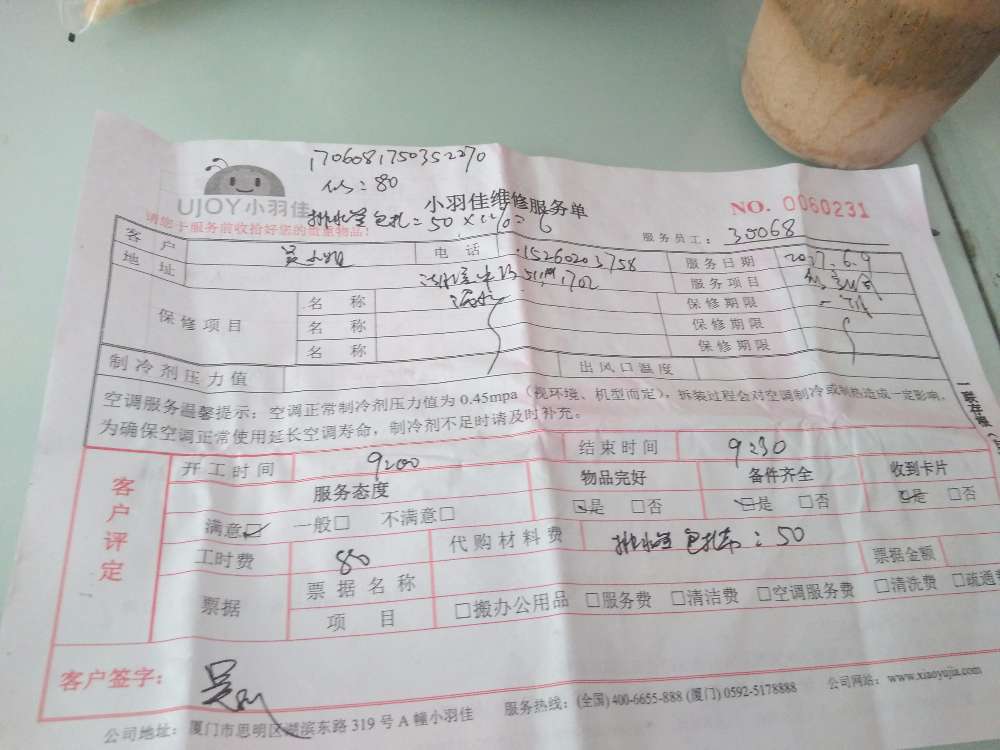 1706081750352270
:80
UJOY小羽佳
小羽佳维修服务单
NO. 0060231
请您于服务前收拾好您的贵重物品!
排水管包扎=50×12%=6
服务员工: 35068
客户 吴小姐 电话 15260203758 服务日期 2017.6.9
地址 1702 服务项目
保修项目 名称 漏水 保修期限
名称 保修期限
名称 保修期限
制冷剂压力值 出风口温度
空调服务温馨提示:空调正常制冷剂压力值为0.45mpa(视环境、机型而定),拆装过程会对空调制冷或制热造成一定影响,
为确保空调正常使用延长空调寿命,制冷剂不足时请及时补充。
一联存根
客户评定
开工时间 9:00 结束时间 9:30
服务态度 物品完好 备件齐全 收到卡片
满意☑ 一般□ 不满意□ ☑是 □否 ☑是 □否 ☑是 □否
工时费 80 代购材料费 排水管包扎布:50
票据 票据名称 票据金额
项目 □搬办公用品 □服务费 □清洁费 □空调服务费 □清洗费 □疏通费
客户签字: 吴
公司地址:厦门市思明区湖滨东路319号A幢小羽佳 服务热线:(全国)400-6655-888 (厦门)0592-5178888 公司网站:www.xiaoyujia.com